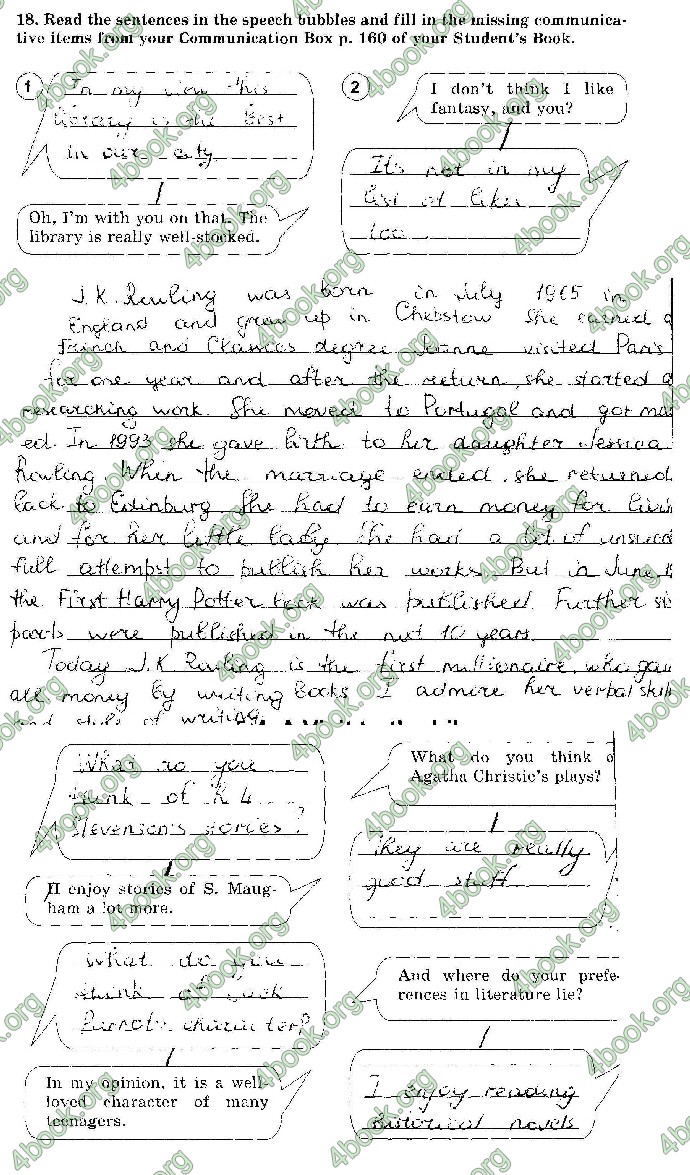 18. Read the sentences in the speech bubbles and fill in the missing communica-
tive items from your Communication Box p. 160 of your Student's Book.
1
In my view this
library is the best
in our city
Oh, I'm with you on that. The
library is really well-stocked.
2
I don't think I like
fantasy, and you?
It's not in my
list of likes
too
J.K. Rowling was born in July 1965 in
England and grew up in Chepstow She earned a
French and Classics degree. Joanne visited Paris
for one year and after the return, she started a
researching work. She moved to Portugal and got mar
ed. In 1993 she gave birth to her daughter Jessica
Rowling. When the marriage ended, she returned
back to Edinburg. She had to earn money for livin
and for her little baby. She had a lot of unsucc
full attempt to publish her works. But in June,
the First Harry Potter book was published. Further
parts were published in the next 10 years.
Today J.K Rowling is the first millionaire, who gain
all money by writing books. I admire her verbal skill
and style of writing
What do you
think of R L
Stevenson's stories?
I enjoy stories of S. Maug-
ham a lot more.
What do you think o
Agatha Christie's plays?
They are really
good stuff
What do you
think of Jack
character?
In my opinion, it is a well-
loved character of many
teenagers.
And where do your prefe-
rences in literature lie?
I enjoy reading
historical novels
4book.org